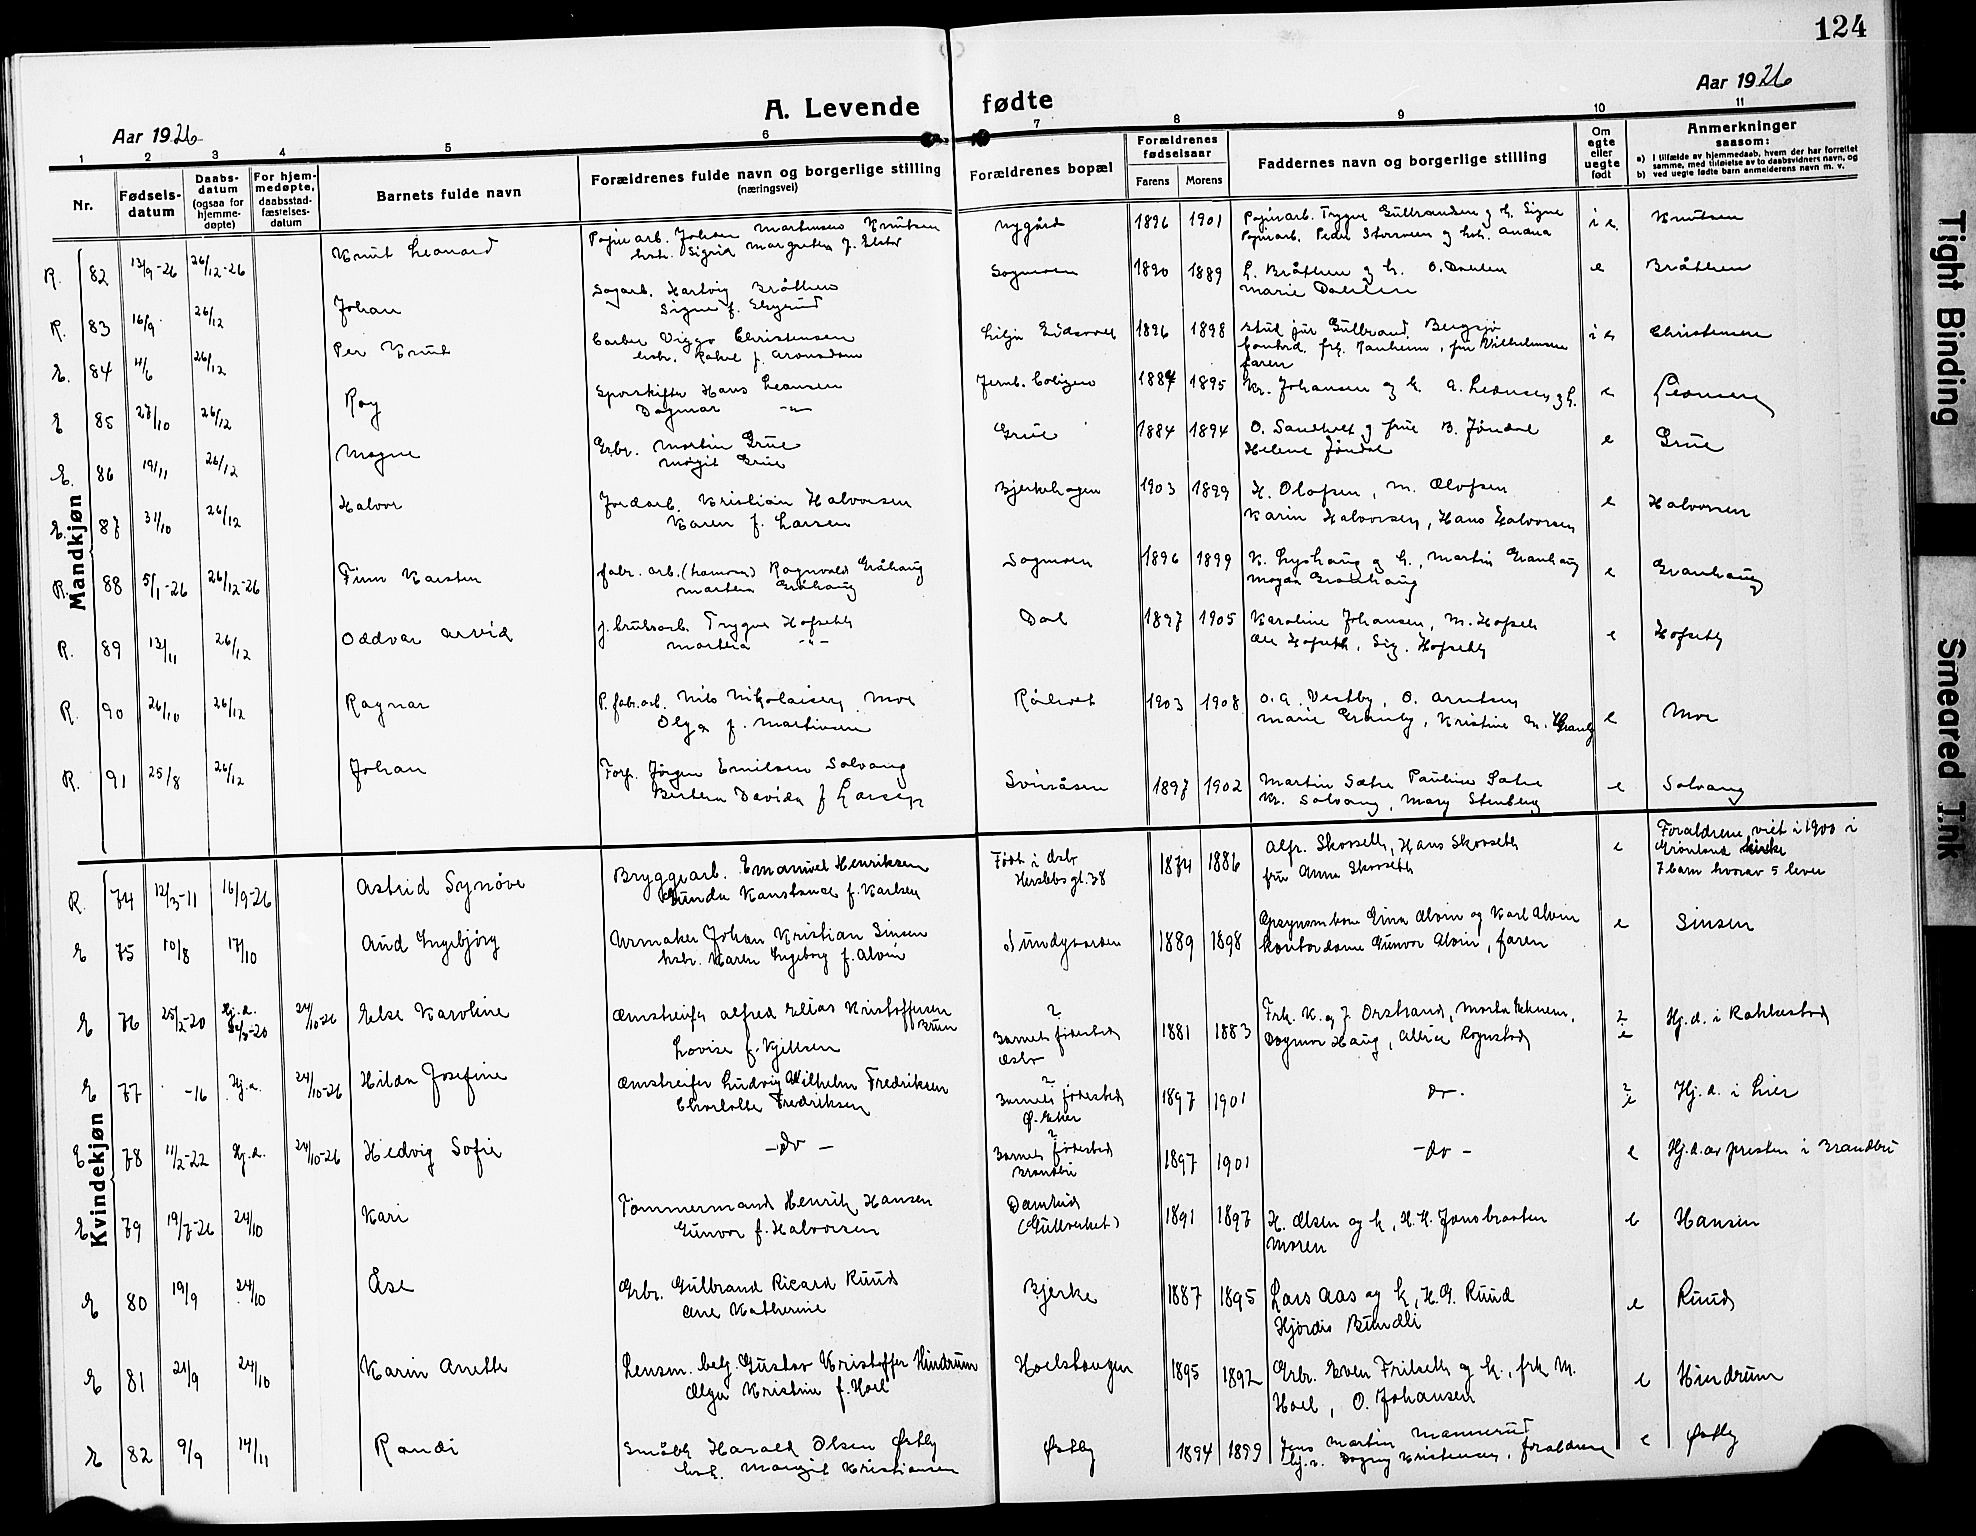 124
Aar 1926
Aar 1926
A. Levende fødte
1 2 3 4 5 6 7 8 9 10 11
Nr.
Fødsels-
datum
Daabs-
datum
(ogsaa for
hjemme-
døpte)
For hjem-
medøpte,
daabsstad-
fæstelses-
datum
Barnets fulde navn
Forældrenes fulde navn og borgerlige stilling
(næringsvei)
Forældrenes bopæl
Forældrenes
fødselsaar
Farens Morens
Faddernes navn og borgerlige stilling
Om
egte
eller
uegte
født
Anmerkninger
saasom:
a) I tilfælde av hjemmedaab, hvem der har forrettet
samme, med tilføielse av to daabsvidners navn, og
b) ved uegte fødte barn anmelderens navn m. v.
Mandkjøn
R. 82 13/9-26 26/12-26 Knut Leonard Papirarb. Johan Martinius Knutsen Nygård 1896 1901 Papirarb. Trygve Gulbrandsen og h. Signe i e. Knutsen
hstr. Sigrid Margrethe f. Papirarb. Peder Storveen og hstr. Andrea
R. 83 16/9 26/12 Johan Sagarb. Hartvig Bråthen Sagmoen 1890 1889 L. Bråthen og h. O. Dahlen e Bråthen
Signe f. Marie Dahlen
E. 84 4/6 26/12 Per Knut Viggo Christensen Lilje Eidsvoll 1896 1898 stud jur Gulbrand Bergsjø Christensen
hstr. Rakel f. Aronsdon frk. Tanheim, fru Vilhelmsen
faren
E 85 28/10 26/12 Roy Sporskifter Hans Leansen Jernb. 1884 1895 Kr. Johansen og h. A. Leansen og h. e Leansen
Dagmar -"-
E. 86 19/11 26/12 Mogne Grbr. Martin Grue Grue 1884 1894 O. Sandholt og frue B. Jøndal e Grue
Margit Grue Helene Jøndal
E. 87 31/10 26/12 Halvor Jordarb. Kristian Halvorsen Bjerkehagen 1903 1899 H. Olafsen, M. Olofsen e Halvorsen
Karen f. Larsen Karin Halvorsen, Hans Halvorsen
R. 88 5/1-26 26/12-26 Finn Karsten fabr. arb. Ragnvald Gråhaug Sagmoen 1896 1899 K. Lyshaug og h., Martin Granhaug e Granhaug
Marthea Gråhaug Magda Granhaug
R. 89 13/11 26/12 Oddvar Arvid Trygve Hofseth Dal 1897 1905 Karoline Johansen, M. Hofseth e Hofseth
Marthea -"- Hofseth, Sig. Hofseth
R. 90 26/10 26/12 Ragnar P. fabr.arb. Nils Nikolaisen Moe Råholt 1903 1908 O. A. Vestby, O. Arntsen e Moe
Olga f. Martinsen Marie Granby, Kristine M. Granby
R. 91 25/8 26/12 Johan Forp. Jørgen Emilsen Solvang Svinåsen 1897 1902 Martin Sætre Pauline Sætre e Solvang
Berthea Davida f Larsen Kr. Solvang, Mary Stenberg
Kvindekjøn
R. 74 12/3-11 16/9-26 Astrid Synøve Bryggearb. Emanuel Henriksen Født i Oslo 1874 1886 Alfr. Skorseth, Hans Skorseth e Forældrene viet i 1900 i
Gunda Konstance f. Karlsen Herslebs gt. 38 fru Anna Skorseth Grønland kirke
7 barn hvorav 5 lever
E 75 10/8 17/10 Aud Ingebjørg Urmaker Johan Kristian Sinsen Sundgaarden 1889 1898 Opsynsm. Einar Alvin og Karl Alvin e Sinsen
hstr. Karen Ingeborg f. Alvin kontordame Gunvor Alvin, faren
E 76 25/2-20 Hj.d. /3-20 24/10-26 Else Karoline Omstreifer Alfred Elias Kristoffersen ? 1881 1883 Frk. K. og J. Orstrand, Marta Ekknem, ? Hj.d. i Rakkestad
Brun Barnets fødested Dagmar Haug, Rognstad e
Lovise f. Kjellsen Oslo
E 77 -16 Hj.d. 24/10-26 Hilda Josefine Omstreifer Ludvig Wilhelm Fredriksen ? 1897 1901 do. ? Hj.d. i Lier
Charlotte Fredriksen Barnets fødested e
Ø. Eker
E 78 11/2-22 Hj.d. 24/10-26 Hedvig Sofie -do- ? 1897 1901 -do- e Hj.d. av presten i Brandbu
Barnets fødested
Brandbu
E 79 19/7-26 24/10 Kari Tømmermand Henrik Hansen Damhus 1891 1897 H. Olsen og h, H. H. Jonsbraaten e Hansen
Gunvor f. Halvorsen (Gullverket) Moren
E 80 19/9 24/10 Åse Grbr. Gulbrand Ricard Ruud Bjerke 1887 1895 Lars Aas og h, H. G. Ruud e Ruud
Ane Katherine Hjørdis Bundli
E 81 21/9 24/10 Karin Anette Lensm. betj. Gustav Kristoffer Hindrum Hoelshaugen 1895 1892 Grbr. Even Frilseth og h., frk M. e Hindrum
Olga Kristine f. Hoel Hoel, O. Johansen
E 82 9/9 14/11 Randi Småbr. Harald Olsen Østby Østby 1894 1899 Jens Martin Mannerud e Østby
hstr. Margit Kristiansen Dagny Kristensen, forældrene
Tight Binding
Smeared Ink